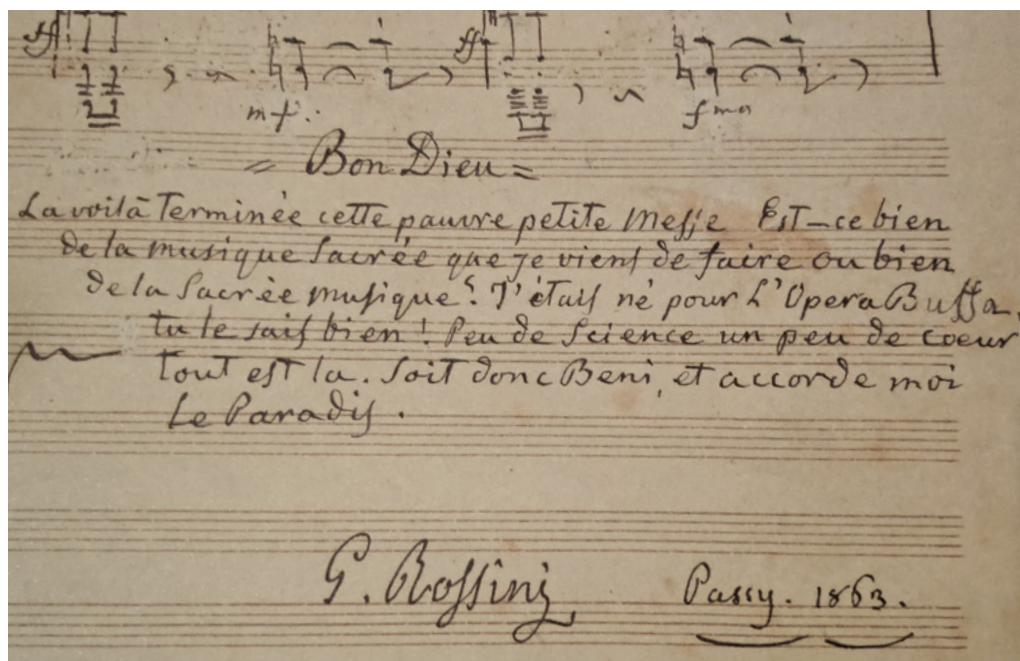 ff ff
mf. fma
= Bon Dieu =
La voilà Terminée cette pauvre petite Messe Est-ce bien
de la musique Sacrée que je viens de faire ou bien
de la Sacrée musique? J'étais né pour L'Opera Buffa,
tu le sais bien! Peu de Science un peu de coeur
tout est la. Soit donc Beni, et accorde moi
Le Paradis.
G. Rossini Passy. 1863.